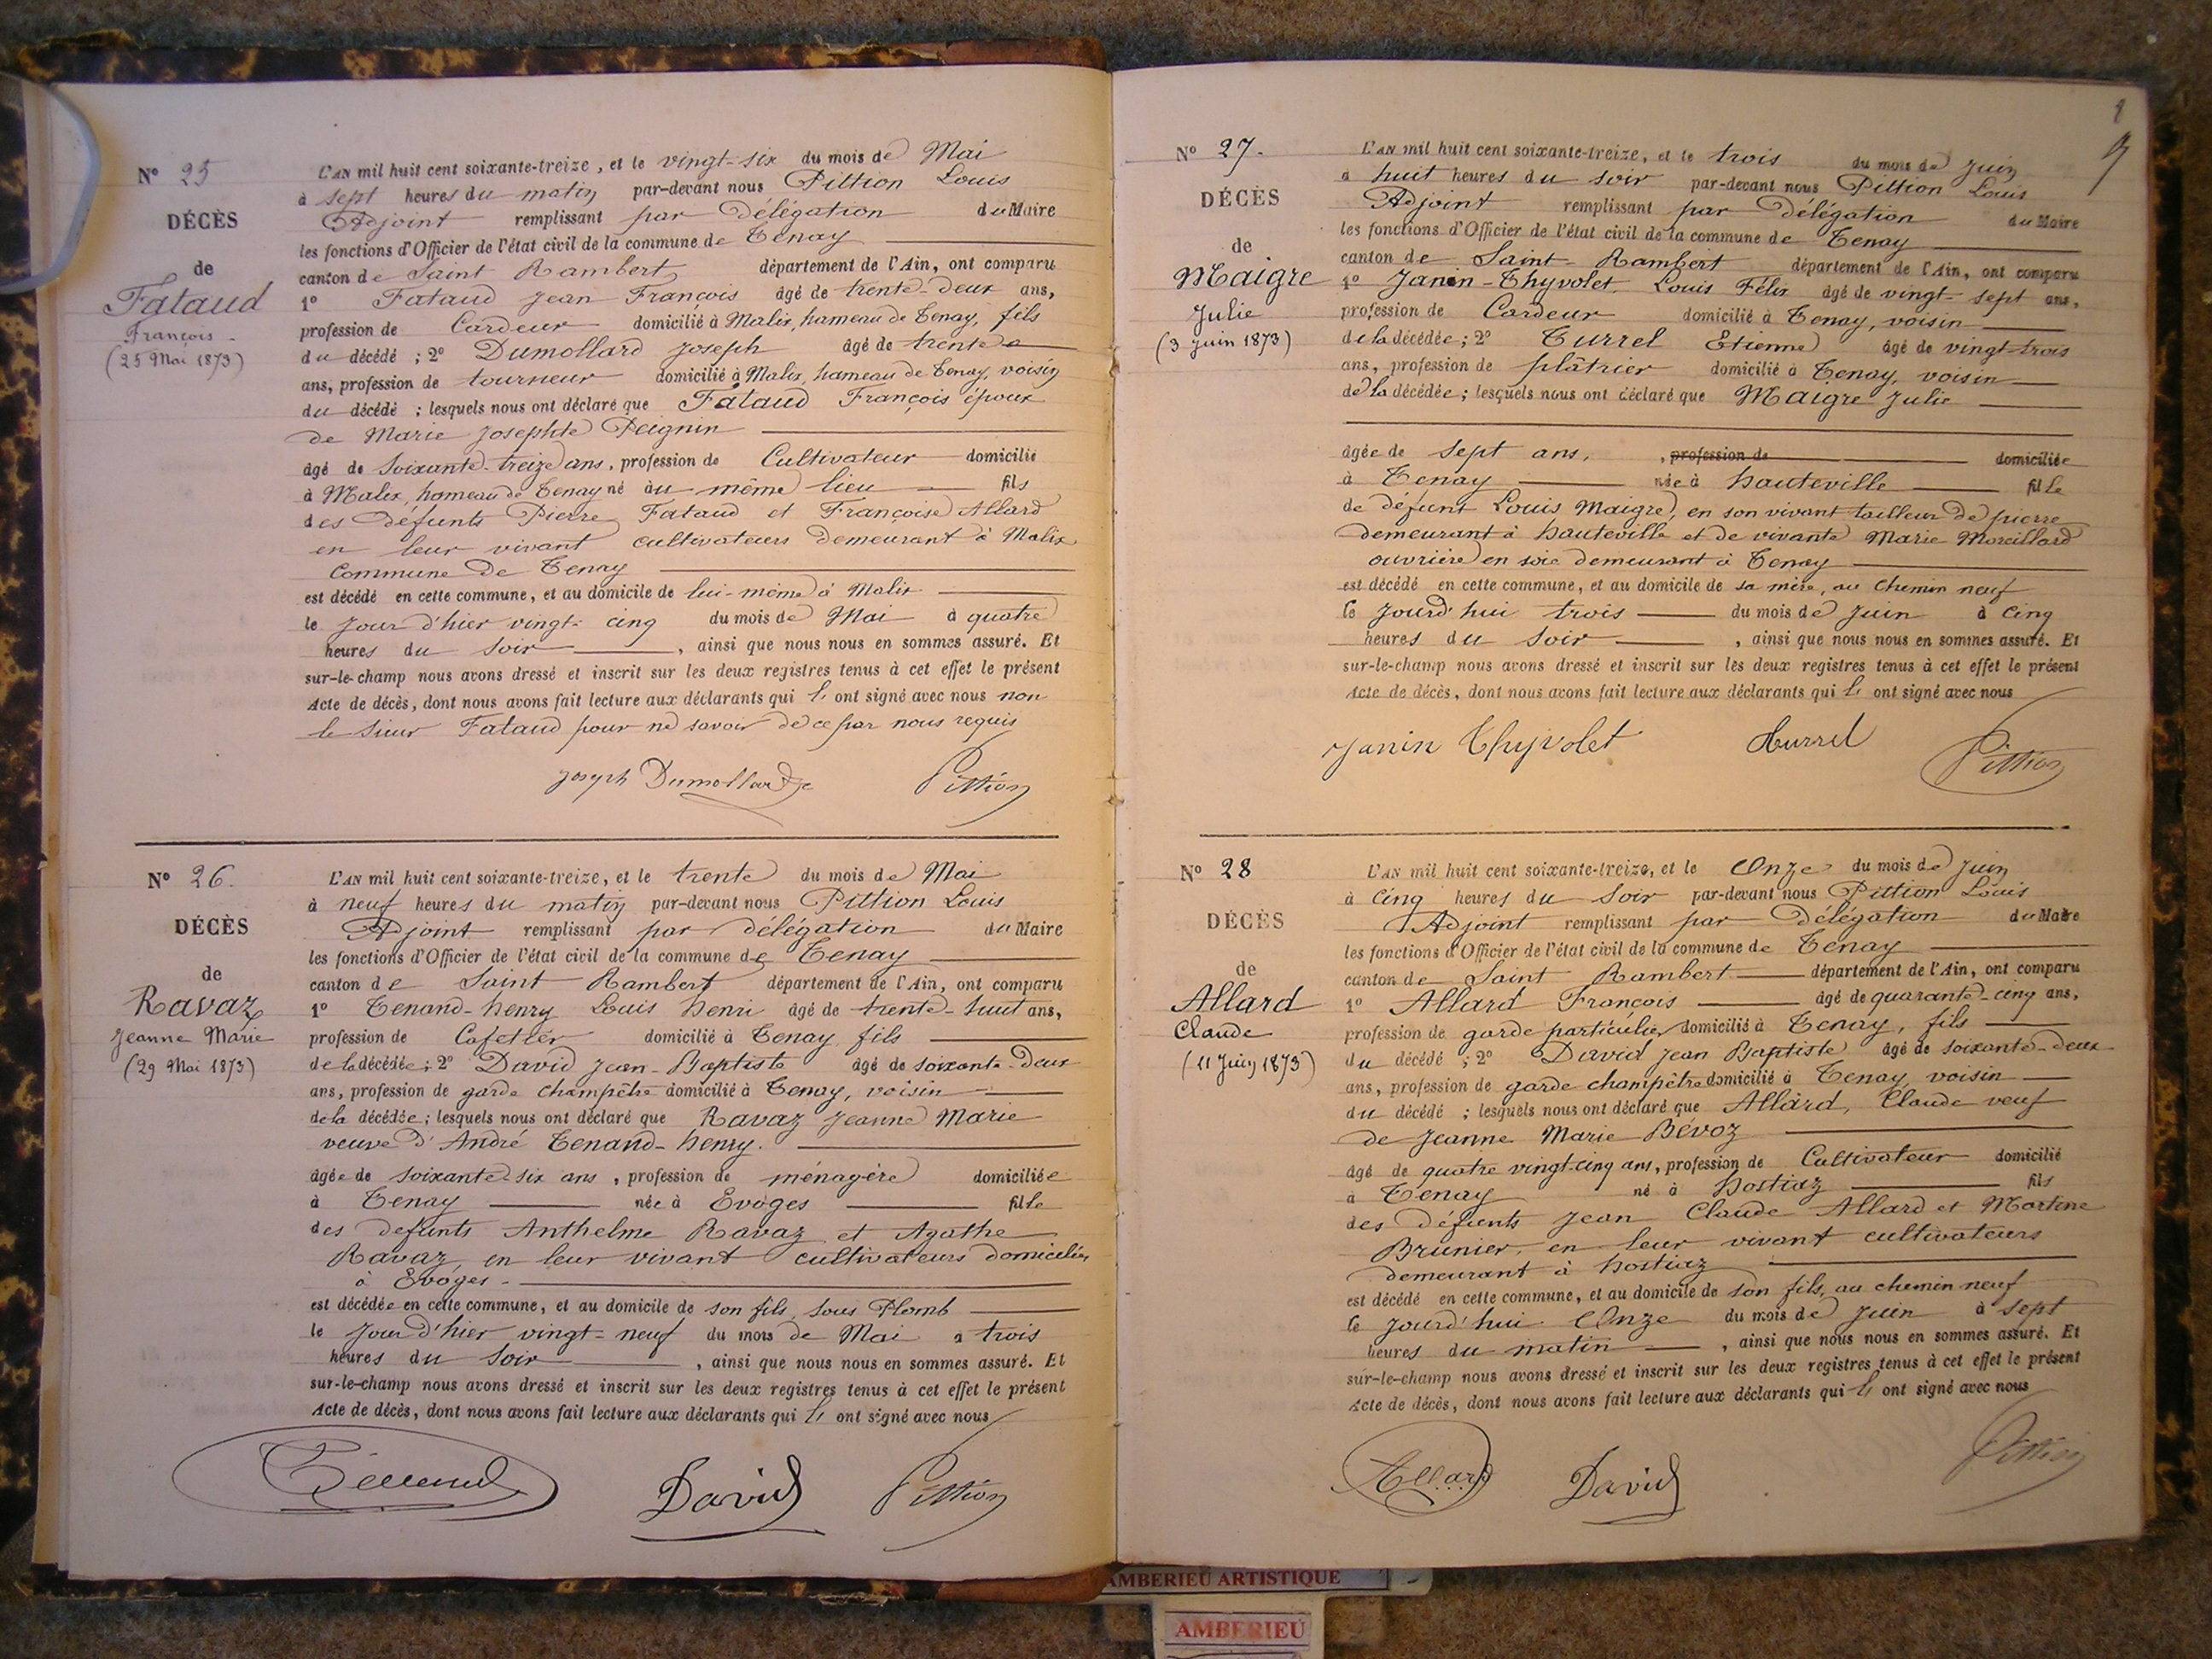 Nº 25
DÉCÈS
de
Fataud
François
(25 Mai 1873)
L'AN mil huit cent soixante-treize, et le vingt-six du mois de Mai
à sept heures du matin par-devant nous Pittion Louis
Adjoint remplissant par Délégation du Maire
les fonctions d'Officier de l'état civil de la commune de Tenay
canton de Saint Rambert département de l'Ain, ont comparu
1º Fataud Jean François âgé de trente-deux ans,
profession de Cardeur domicilié à Malix, hameau de Tenay, fils
du décédé ; 2º Dumollard Joseph âgé de trente
ans, profession de tourneur domicilié à Malix, hameau de Tenay, voisin
du décédé ; lesquels nous ont déclaré que Fataud François époux
de Marie Josephte Peignin
âgé de soixante-treize ans, profession de Cultivateur domicilié
à Malix, hameau de Tenay né au même lieu fils
des défunts Pierre Fataud et Françoise Allard
en leur vivant cultivateurs demeurant à Malix
commune de Tenay
est décédé en cette commune, et au domicile de lui-même à Malix
le jour d'hier vingt-cinq du mois de Mai à quatre
heures du soir, ainsi que nous nous en sommes assuré. Et
sur-le-champ nous avons dressé et inscrit sur les deux registres tenus à cet effet le présent
Acte de décès, dont nous avons fait lecture aux déclarants qui l' ont signé avec nous non
le sieur Fataud pour ne savoir de ce par nous requis
Joseph Dumollard Pittion
Nº 26.
DÉCÈS
de
Ravaz
Jeanne Marie
(29 Mai 1873)
L'AN mil huit cent soixante-treize, et le trente du mois de Mai
à neuf heures du matin par-devant nous Pittion Louis
Adjoint remplissant par délégation du Maire
les fonctions d'Officier de l'état civil de la commune de Tenay
canton de Saint Rambert département de l'Ain, ont comparu
1º Tenand-henry Louis henri âgé de trente-huit ans,
profession de Cafetier domicilié à Tenay fils
de la décédée ; 2º David Jean-Baptiste âgé de soixante-deux
ans, profession de garde champêtre domicilié à Tenay, voisin
de la décédée ; lesquels nous ont déclaré que Ravaz Jeanne Marie
veuve d'André Tenand-henry.
âgée de soixante-six ans, profession de ménagère domiciliée
à Tenay née à Evoges fille
des défunts Anthelme Ravaz et Agathe
Ravaz, en leur vivant cultivateurs domiciliés
à Evoges
est décédée en cette commune, et au domicile de son fils, sous Plomb
le jour d'hier vingt-neuf du mois de Mai à trois
heures du soir, ainsi que nous nous en sommes assuré. Et
sur-le-champ nous avons dressé et inscrit sur les deux registres tenus à cet effet le présent
Acte de décès, dont nous avons fait lecture aux déclarants qui l' ont signé avec nous
David Pittion
Nº 27.
DÉCÈS
de
Maigre
Julie
(3 Juin 1873)
L'AN mil huit cent soixante-treize, et le trois du mois de Juin
à huit heures du soir par-devant nous Pittion Louis
Adjoint remplissant par Délégation du Maire
les fonctions d'Officier de l'état civil de la commune de Tenay
canton de Saint-Rambert département de l'Ain, ont comparu
1º Janin-Thyvolet, Louis Félix âgé de vingt-sept ans,
profession de Cardeur domicilié à Tenay, voisin
de la décédée ; 2º Turrel Etienne âgé de vingt-trois
ans, profession de plâtrier domicilié à Tenay, voisin
de la décédée ; lesquels nous ont déclaré que Maigre Julie
âgée de sept ans, , profession de domiciliée
à Tenay née à hauteville fille
de défunt Louis Maigre, en son vivant tailleur de pierre
demeurant à hauteville et de vivante Marie Morcillard
ouvrière en soie demeurant à Tenay
est décédé en cette commune, et au domicile de sa mère, au chemin neuf
le jourd'hui trois du mois de Juin à cinq
heures du soir, ainsi que nous nous en sommes assuré. Et
sur-le-champ nous avons dressé et inscrit sur les deux registres tenus à cet effet le présent
Acte de décès, dont nous avons fait lecture aux déclarants qui l' ont signé avec nous
Janin Thyvolet Turrel Pittion
Nº 28
DÉCÈS
de
Allard
Claude
(11 Juin 1873)
L'AN mil huit cent soixante-treize, et le Onze du mois de Juin
à Cinq heures du soir par-devant nous Pittion Louis
Adjoint remplissant par Délégation du Maire
les fonctions d'Officier de l'état civil de la commune de Tenay
canton de Saint Rambert département de l'Ain, ont comparu
1º Allard François âgé de quarante-cinq ans,
profession de garde particulier domicilié à Tenay, fils
du décédé ; 2º David Jean Baptiste âgé de soixante-deux
ans, profession de garde champêtre domicilié à Tenay, voisin
du décédé ; lesquels nous ont déclaré que Allard, Claude veuf
de Jeanne Marie Bevoz
âgé de quatre vingt-cinq ans, profession de Cultivateur domicilié
à Tenay né à hostiaz fils
des défunts Jean Claude Allard et Martine
Brunier, en leur vivant cultivateurs
demeurant à hostiaz
est décédé en cette commune, et au domicile de son fils, au chemin neuf
le jourd'hui Onze du mois de Juin à sept
heures du matin, ainsi que nous nous en sommes assuré. Et
sur-le-champ nous avons dressé et inscrit sur les deux registres tenus à cet effet le présent
Acte de décès, dont nous avons fait lecture aux déclarants qui l' ont signé avec nous
Allard David Pittion
AMBERIEU ARTISTIQUE
AMBERIEU